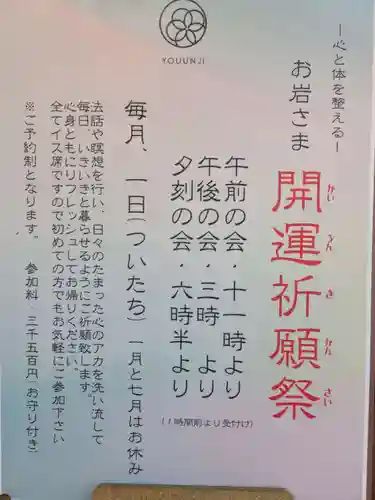 YOUUNJI
ー心と体を整えるー
お岩さま
開運祈願祭
かい うん き がん さい
午前の会・十一時より
午後の会・三時 より
夕刻の会・六時半より
(1時間前より受付け)
毎月、一日(ついたち) 一月と七月はお休み
法話や瞑想を行い、日々のたまった心のアカを洗い流して
毎日、いきいきと暮らせるようにご祈願致します。
心身ともにリフレッシュしてお帰りください。
全てイス席ですので初めての方でもお気軽にご参加下さい
※ご予約制となります。 参加料：三千五百円(お守り付き)